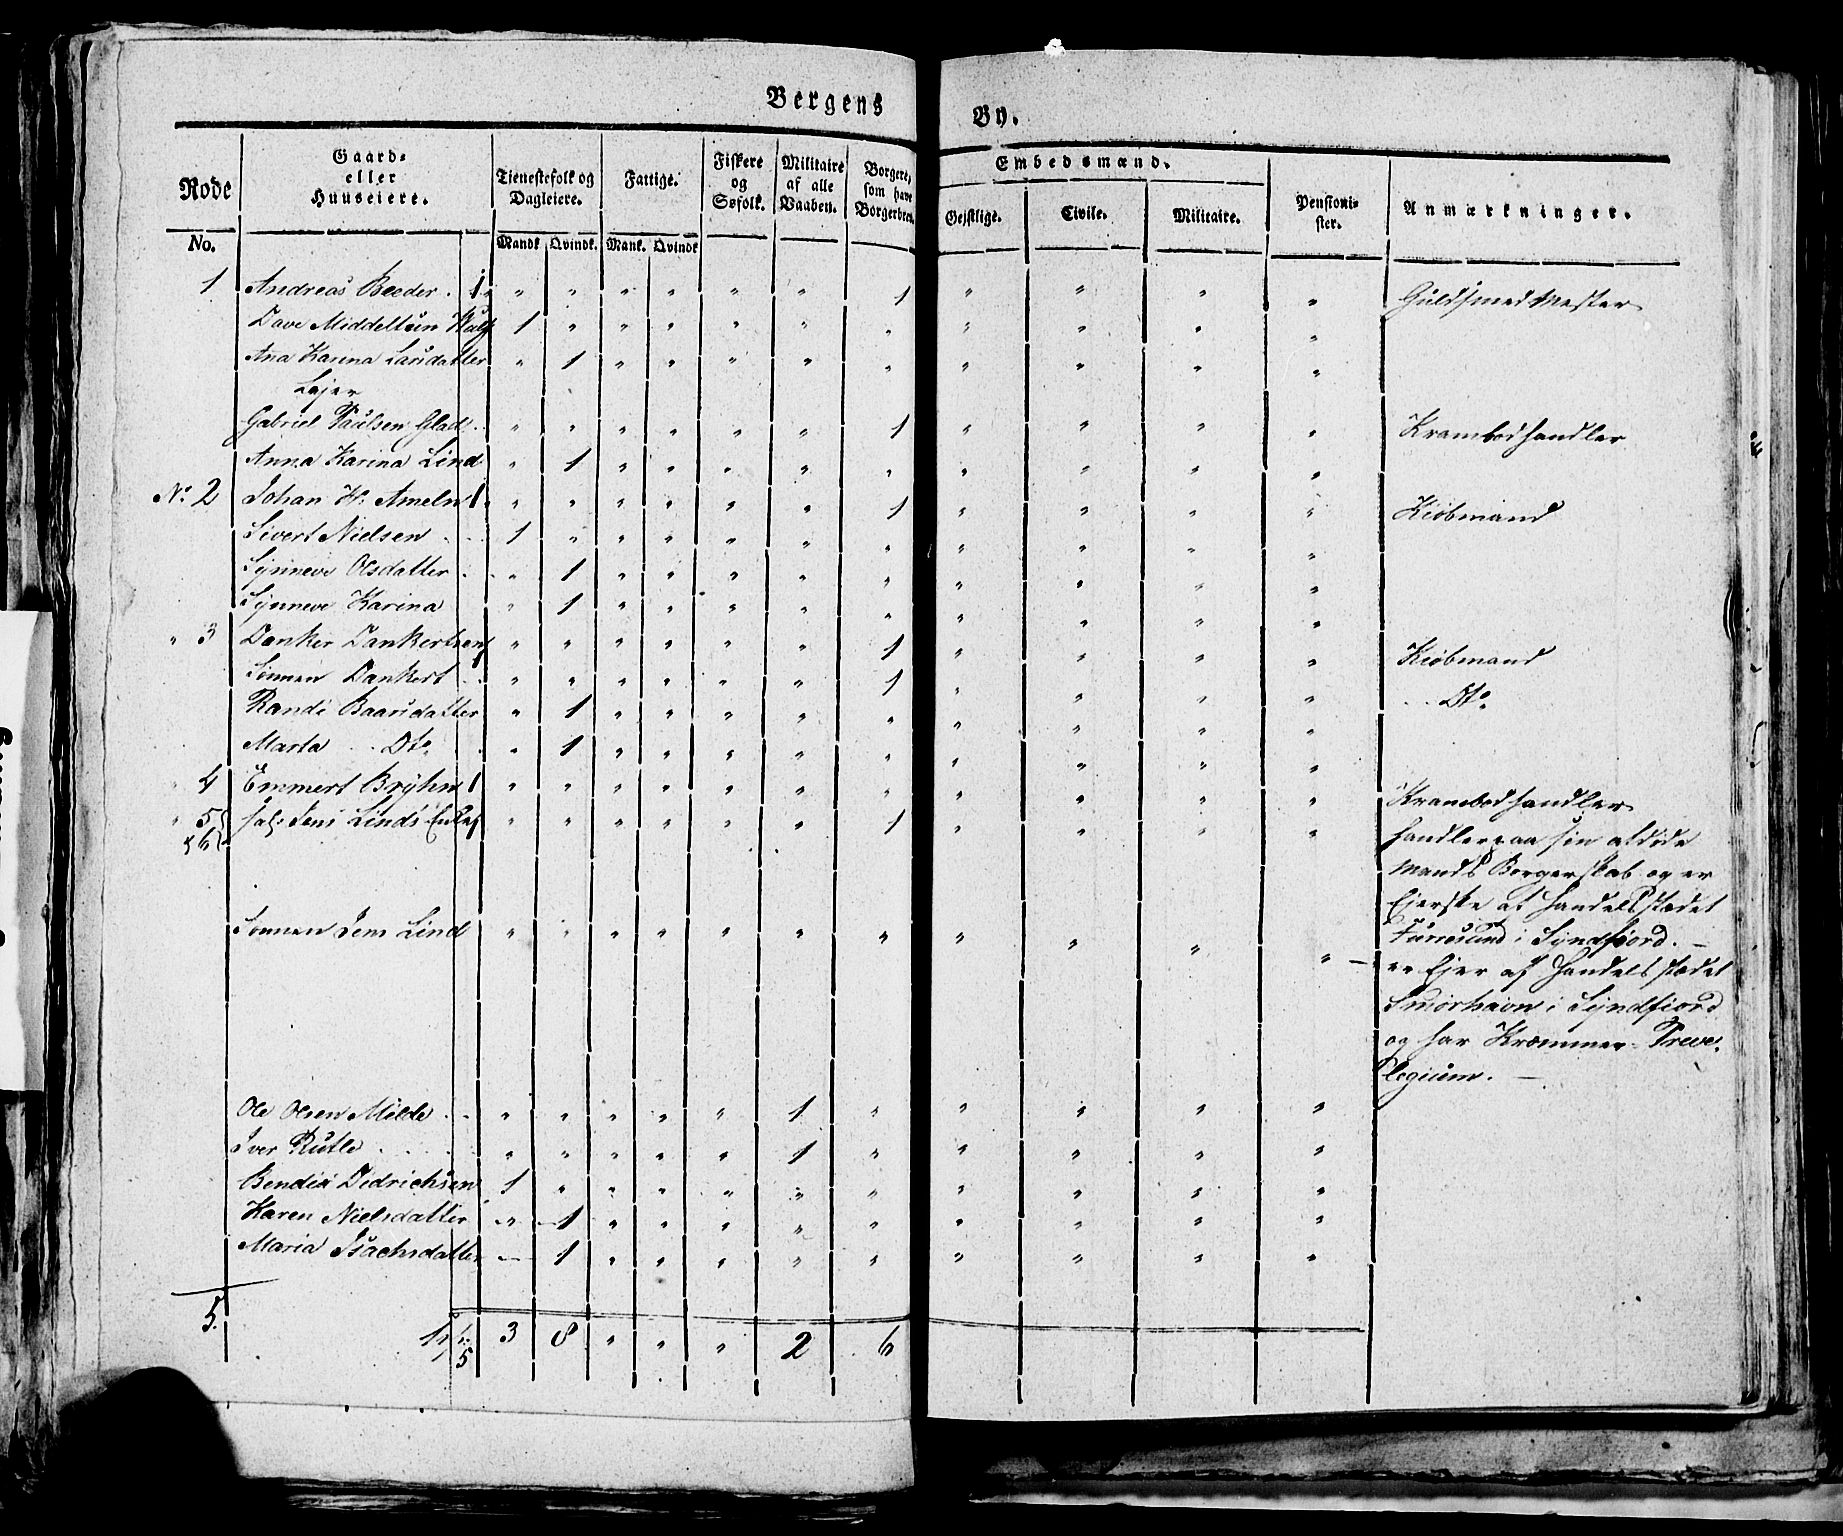 Bergens By.
Rode No.
Gaard- eller Huuseiere.
Tjenestefolk og Dagleiere.
Mandk Qvindk.
Fattige.
Mank. Qvindk
Fiskere og Søfolk.
Militaire af alle Vaaben.
Borgere, som have Borgerbrev
Embedsmænd.
Gejstlige. Civile. Militaire.
Pensionister.
Anmærkninger.
1 Andreas Beeder . 1 " " " " " " 1 " " " " Guldsmed Mester
Dave Middeltun 1 " " " " " " " " " "
Ana Karina Larsdatter " 1 " " " " " " " " "
Lejer
Gabriel Paulsen Glad . " " " " " " 1 " " " " Krambodhandler
Anna Karina Lind " 1 " " " " " " " " "
No 2 Johan H: Ameln 1 " " " " " " 1 " " " " Kiøbmand
Sivert Nielsen . . 1 " " " " " " " " " "
Synneve Olsdatter . " 1 " " " " " " " " "
Synneve Karina " 1 " " " " " " " " "
" 3 Danker Dankertsen 1 " " " " " " 1 " " " " Kiøbmand
Sønnen Dankert . . " " " " " " 1 " " " " . . Dto
Randi Baarsdatter " 1 " " " " " " " " "
Marta . . Dto . " 1 " " " " " " " " "
" 4 Emmert Bryhn 1 " " " " " " " " " " " Krambodhandler
" 5 } Sal: Jens Linds Enke 1 " " " " " " 1 " " " " handler paa sin afdøde
6 } Mands Borgerskab og er
Ejerske af Handelsstædet
Furresund i Syndfiord. —
Sønnen Jens Lind " " " " " " " " " " " — er Ejer af Handelsstædet
Smørhavn i Syndfiord
og har Krammer Preve-
legium. —
Ole Olsen Milde . . " " " " " 1 " " " " "
Iver Rutle . . . . " " " " " 1 " " " " "
Bendix Didrichsen 1 " " " " " " " " " "
Karen Nielsdatter " 1 " " " " " " " " "
Maria Isachsdatter — 1 " " " " " " " " "
5. 5 3 8 " " " 2 6